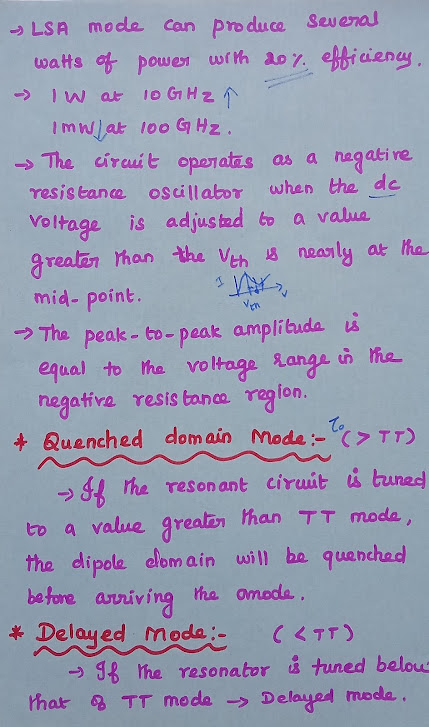 → LSA mode can produce several
watts of power with 20% efficiency.
→ 1W at 10 GHz ↑
1mW↓ at 100 GHz.
→ The circuit operates as a negative
resistance oscillator when the dc
voltage is adjusted to a value
greater than the Vth is nearly at the
mid-point.
I Vth V
→ The peak-to-peak amplitude is
equal to the voltage range in the
negative resistance region.
* Quenched domain Mode:- τo (> TT)
→ If the resonant circuit is tuned
to a value greater than TT mode,
the dipole domain will be quenched
before arriving the anode.
* Delayed Mode:- (< TT)
→ If the resonator is tuned below
that of TT mode → Delayed mode.